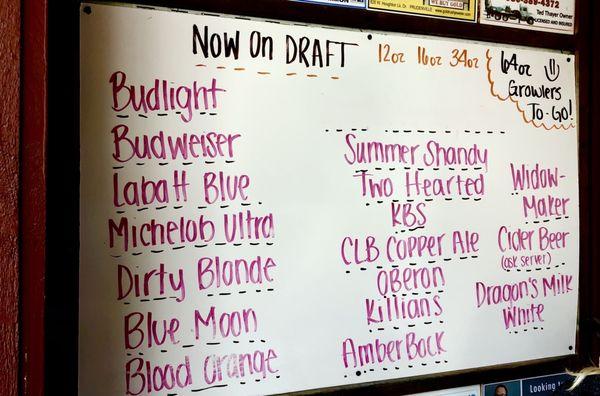 WE BUY GOLD
PRUDENVILLE
989-4372
Ted Thayer Owner
LICENSED AND INSURED
NOW ON DRAFT
12oz 16oz 34oz
64oz
Growlers
To-Go!
Budlight
Budweiser
Labatt Blue
Michelob Ultra
Dirty Blonde
Blue Moon
Blood Orange
Summer Shandy
Two Hearted
KBS
CLB Copper Ale
OBeron
Killians
AmberBock
Widow-
Maker
Cider Beer
(ask server)
Dragon's Milk
White
Looking